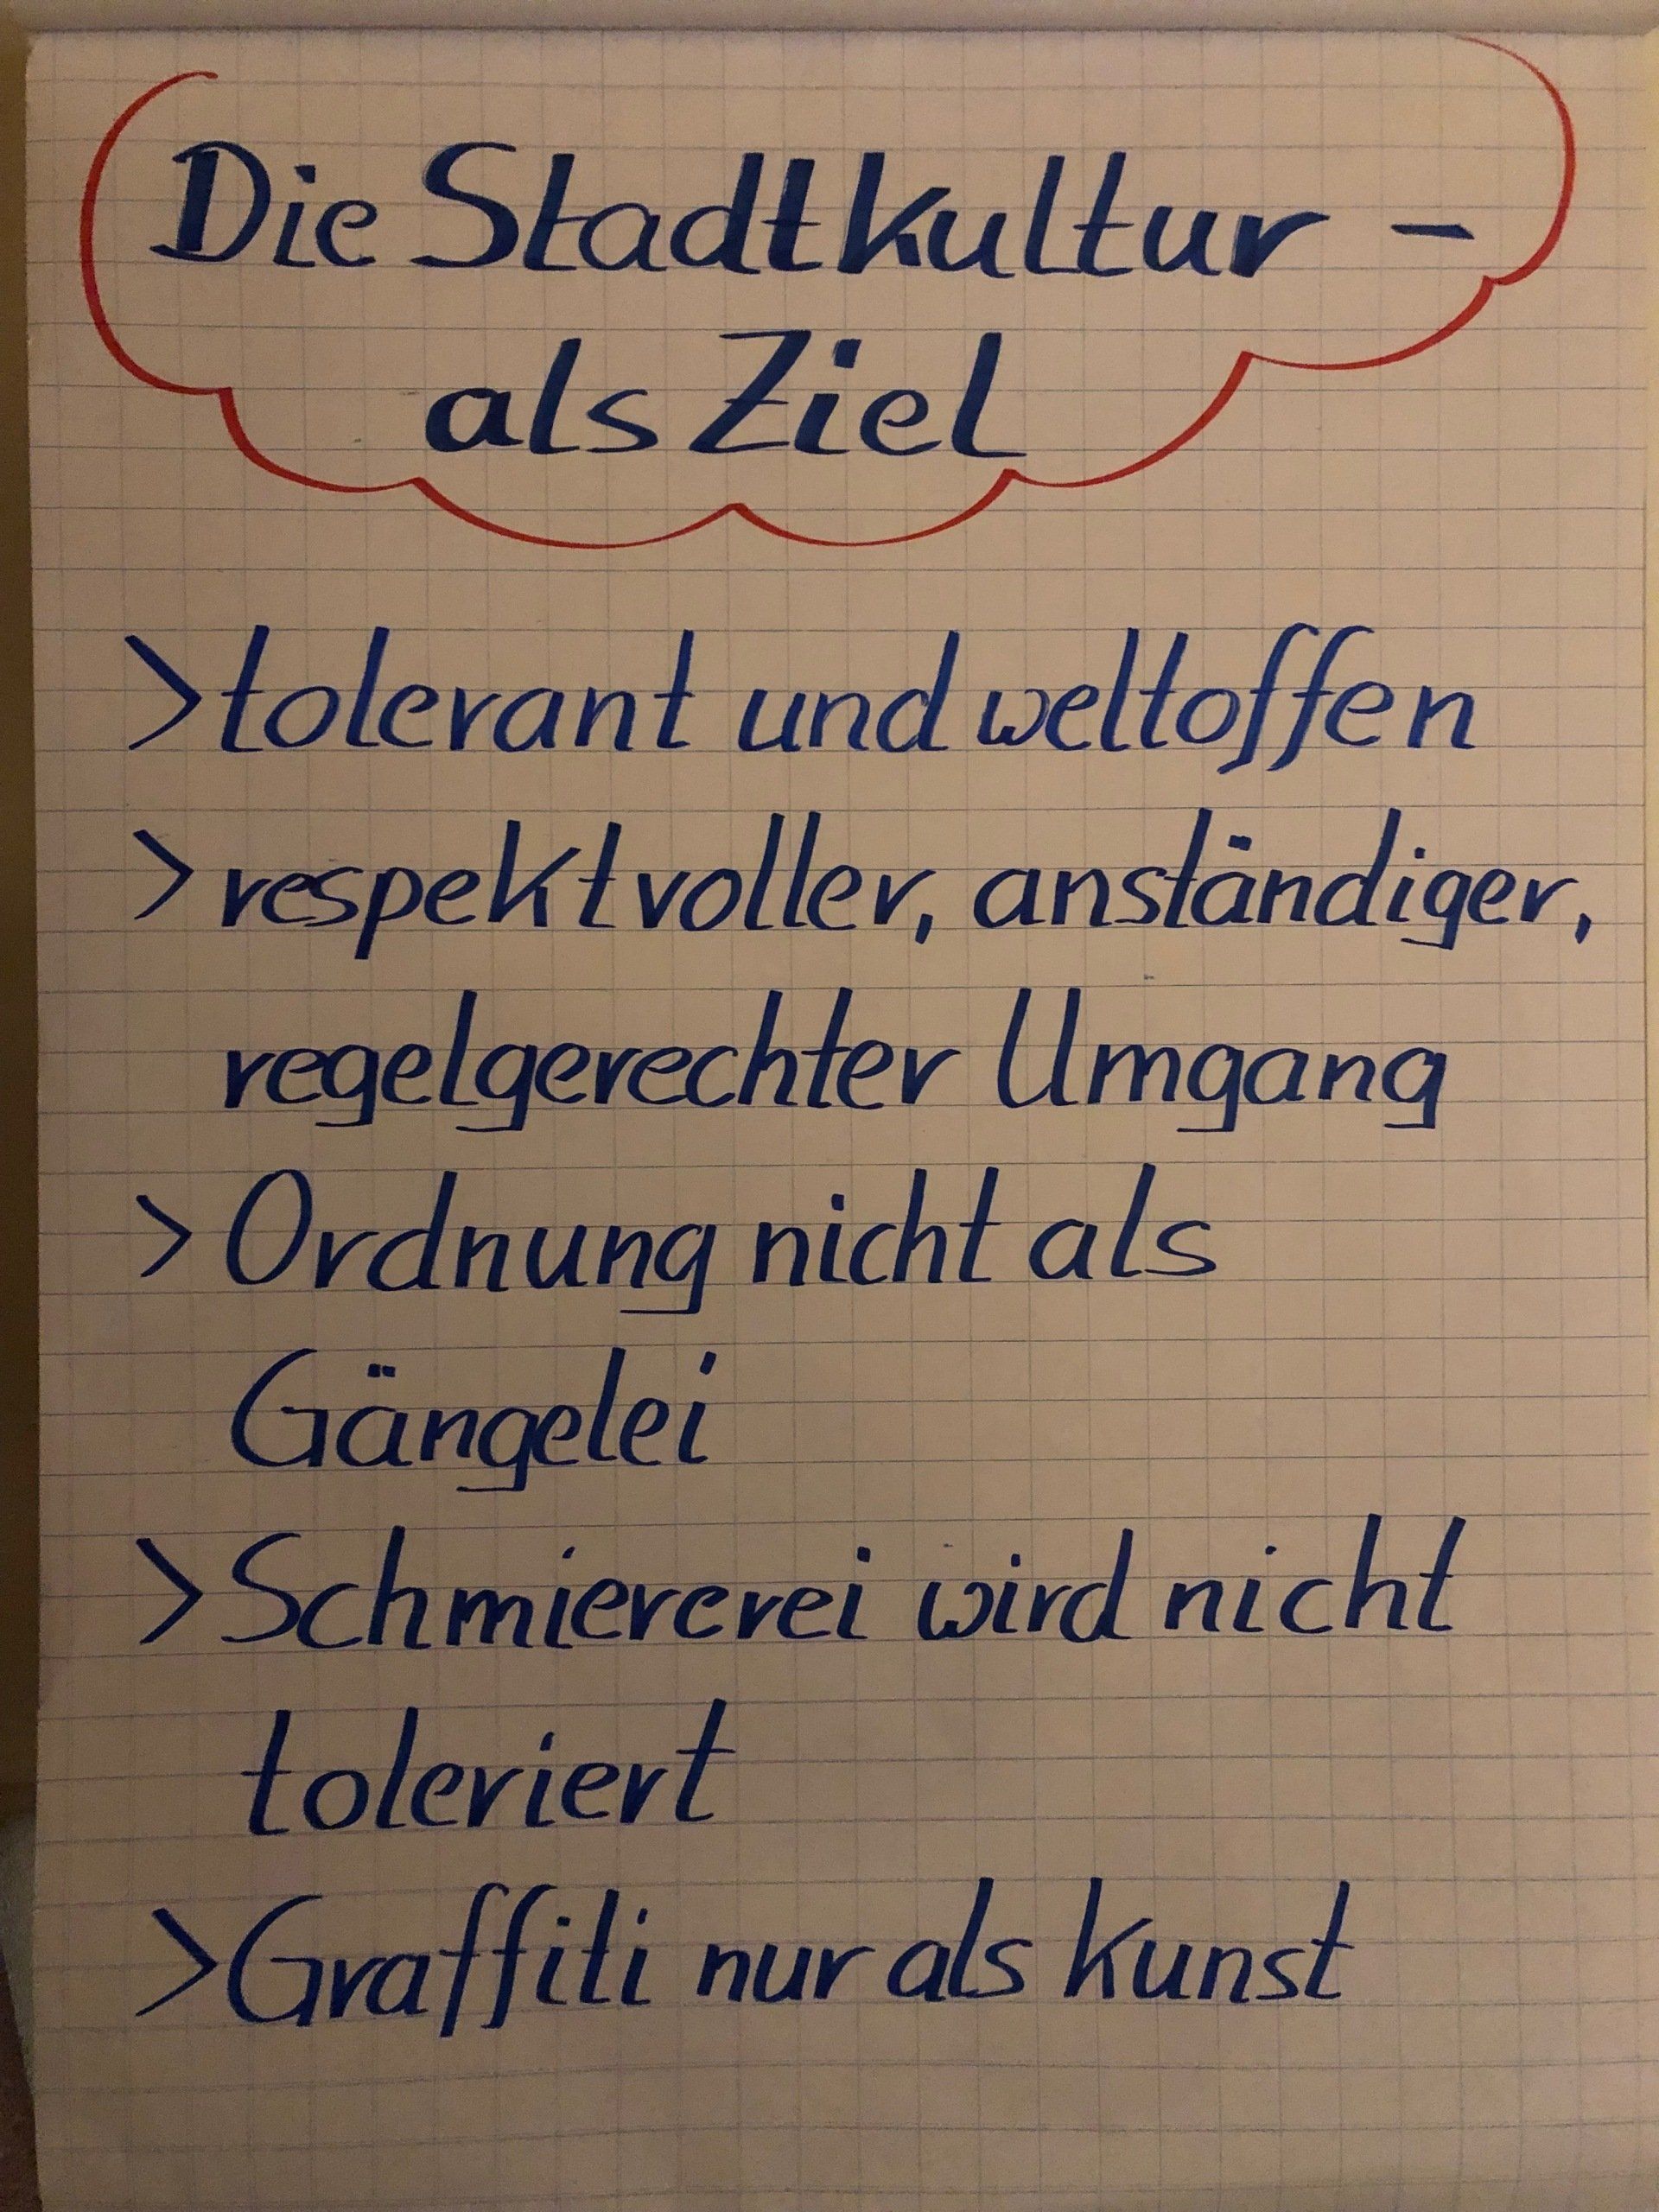 Die Stadtkultur –
als Ziel
> tolerant und weltoffen
> respektvoller, anständiger,
regelgerechter Umgang
> Ordnung nicht als
Gängelei
> Schmiererei wird nicht
toleriert
> Graffiti nur als Kunst